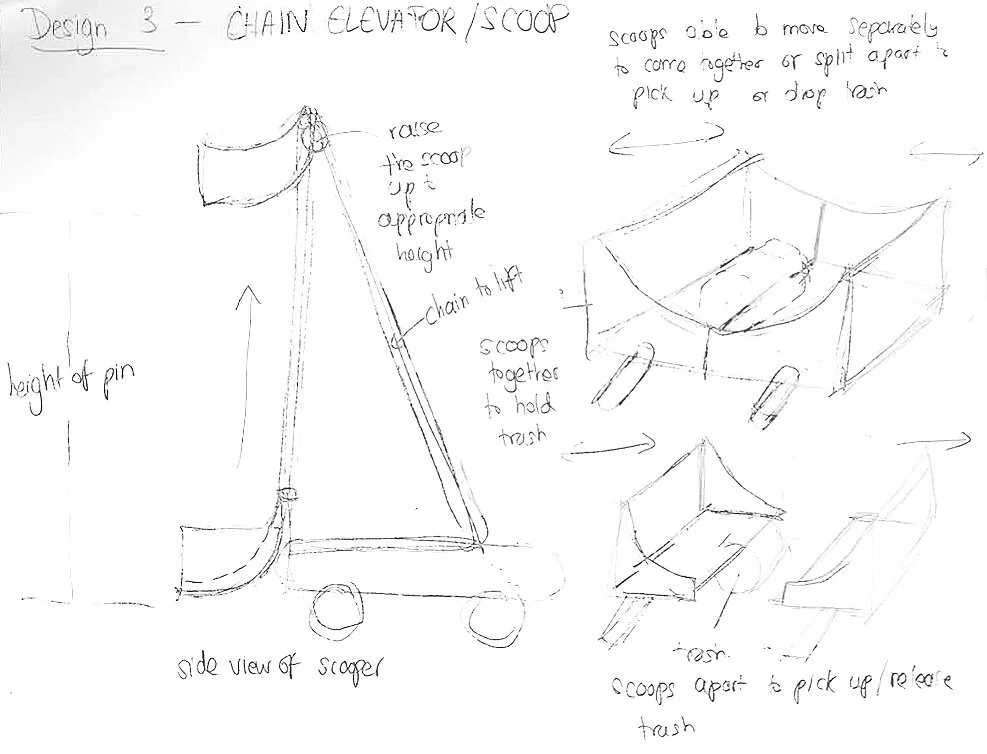 Design 3 - CHAIN ELEVATOR/SCOOP
scoops able to move separately
to come together or split apart to
pick up or drop trash
raise
the scoop
up to
appropriate
height
chain to lift
height of pin
scoops
together
to hold
trash
side view of scooper
trash
scoops apart to pick up/release
trash